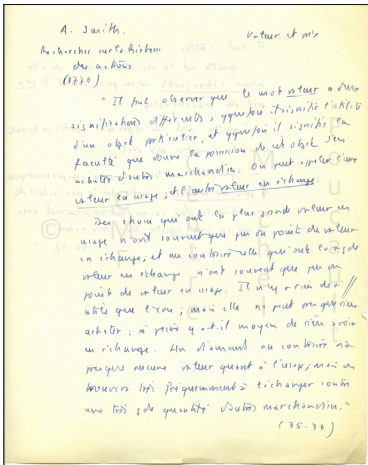 A. Smith.
Valeur et prix
Recherches sur la Richesse
des nations
(1770)
"Il faut observer que le mot valeur a deux
significations différentes ; qqfois il signifie l'utilité
d'un objet particulier, et qqfois il signifie la
faculté que donne la possession de cet objet d'en
acheter d'autres marchandises. On peut appeler l'une
valeur en usage, et l'autre valeur en échange.
Des choses qui ont la plus grande valeur en
usage n'ont souvent que peu ou point de valeur
en échange ; et au contraire celles qui ont la + gde
valeur en échange n'ont souvent que peu ou
point de valeur en usage. Il n'y a rien de +
utile que l'eau ; mais elle ne peut presque rien
acheter ; à peine y a-t-il moyen de rien avoir
en échange. Un diamant au contraire n'a
presque aucune valeur quant à l'usage, mais on
trouvera très fréquemment à l'échanger contre
une très gde quantité d'autres marchandises."
(35-36)